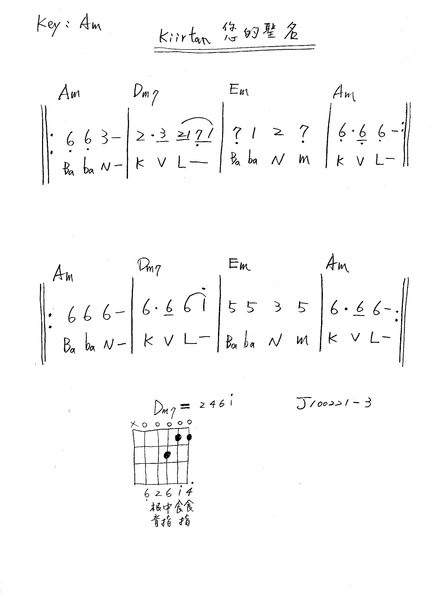 Key: Am
Kiirtan 您的聖名
Am Dm7 Em Am
‖: 6̣ 6̣ 3 – | 2 · 3 2171 | 7̣ 1 2 7̣ | 6̣ · 6̣ 6̣ – :‖
Ba ba N – K V L — Ba ba N m K V L –
Am Dm7 Em Am
‖: 6 6 6 – | 6 · 6 6 i | 5 5 3 5 | 6 · 6 6 – :‖
Ba ba N – K V L – Ba ba N m K V L –
Dm7 = 2 4 6 i J100221-3
x o o o o o
6̣ 2 6 i 4
根中食食
音指 指